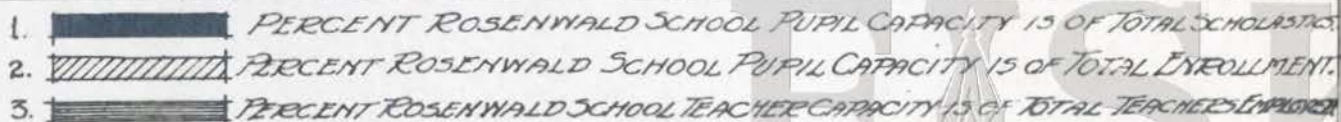 1. PERCENT ROSENWALD SCHOOL PUPIL CAPACITY IS OF TOTAL SCHOLASTICS.
2. PERCENT ROSENWALD SCHOOL PUPIL CAPACITY IS OF TOTAL ENROLLMENT.
3. PERCENT ROSENWALD SCHOOL TEACHER CAPACITY IS OF TOTAL TEACHERS EMPLOYED